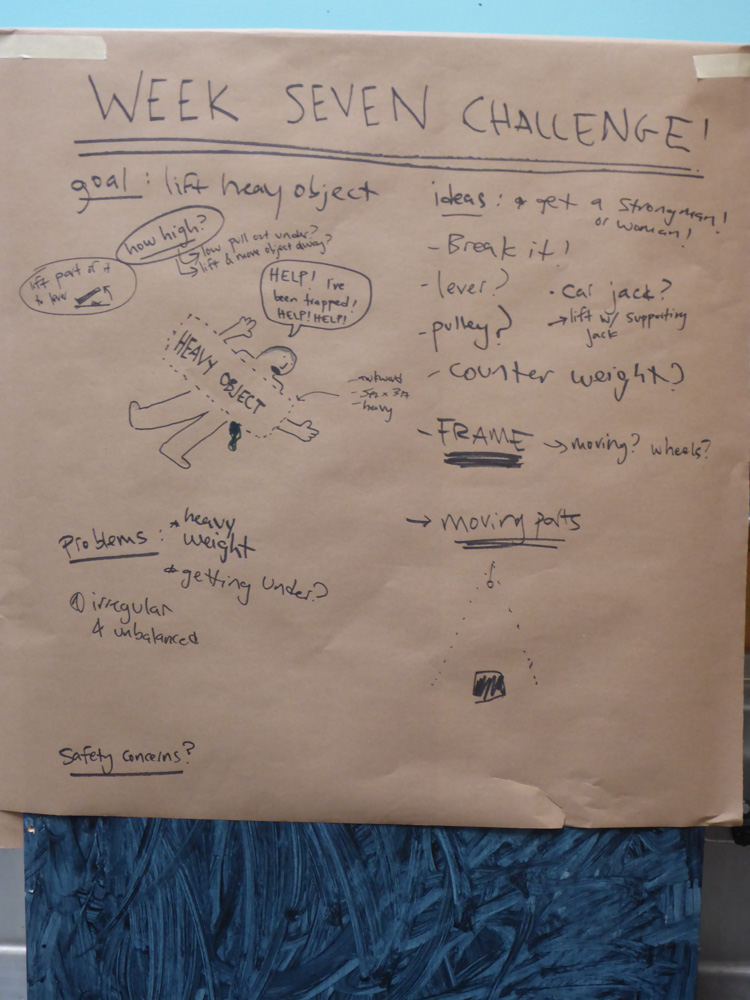 WEEK SEVEN CHALLENGE!
goal: lift heavy object
how high?
→ low pull out under?
→ lift & move object away?
lift part of it
to lever
HELP! I've
been trapped!
HELP! HELP!
HEAVY OBJECT
- awkward
- heavy
Problems: * heavy
weight
* getting under?
irregular
& unbalanced
Safety concerns?
ideas: * get a strongman!
or woman!
- Break it!
- lever?
- pulley?
• car jack?
→ lift w/ supporting
jack
- counter weight?
- FRAME → moving? wheels?
→ moving parts